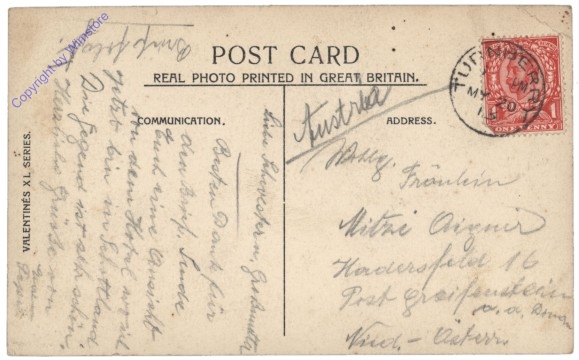 Copyright by Winistore
POST CARD
REAL PHOTO PRINTED IN GREAT BRITAIN.
COMMUNICATION.
ADDRESS.
VALENTINE'S XL SERIES.
Austria
Wohlg.
Fräulein
Mitzi Aigner
Hadersfeld 16
Post Greifenstein
a. d. Donau
Nied.-Österr.
Liebe Schwestern, Großmutter
Besten Dank für
den Brief. Sende
Euch eine Ansicht
von dem Hotel wo ich
jetzt bin in Schottland
Die Gegend ist sehr schön.
Herzliche Grüße von
Brief folgt
TURNBERRY
MY 20
ONE PENNY
1